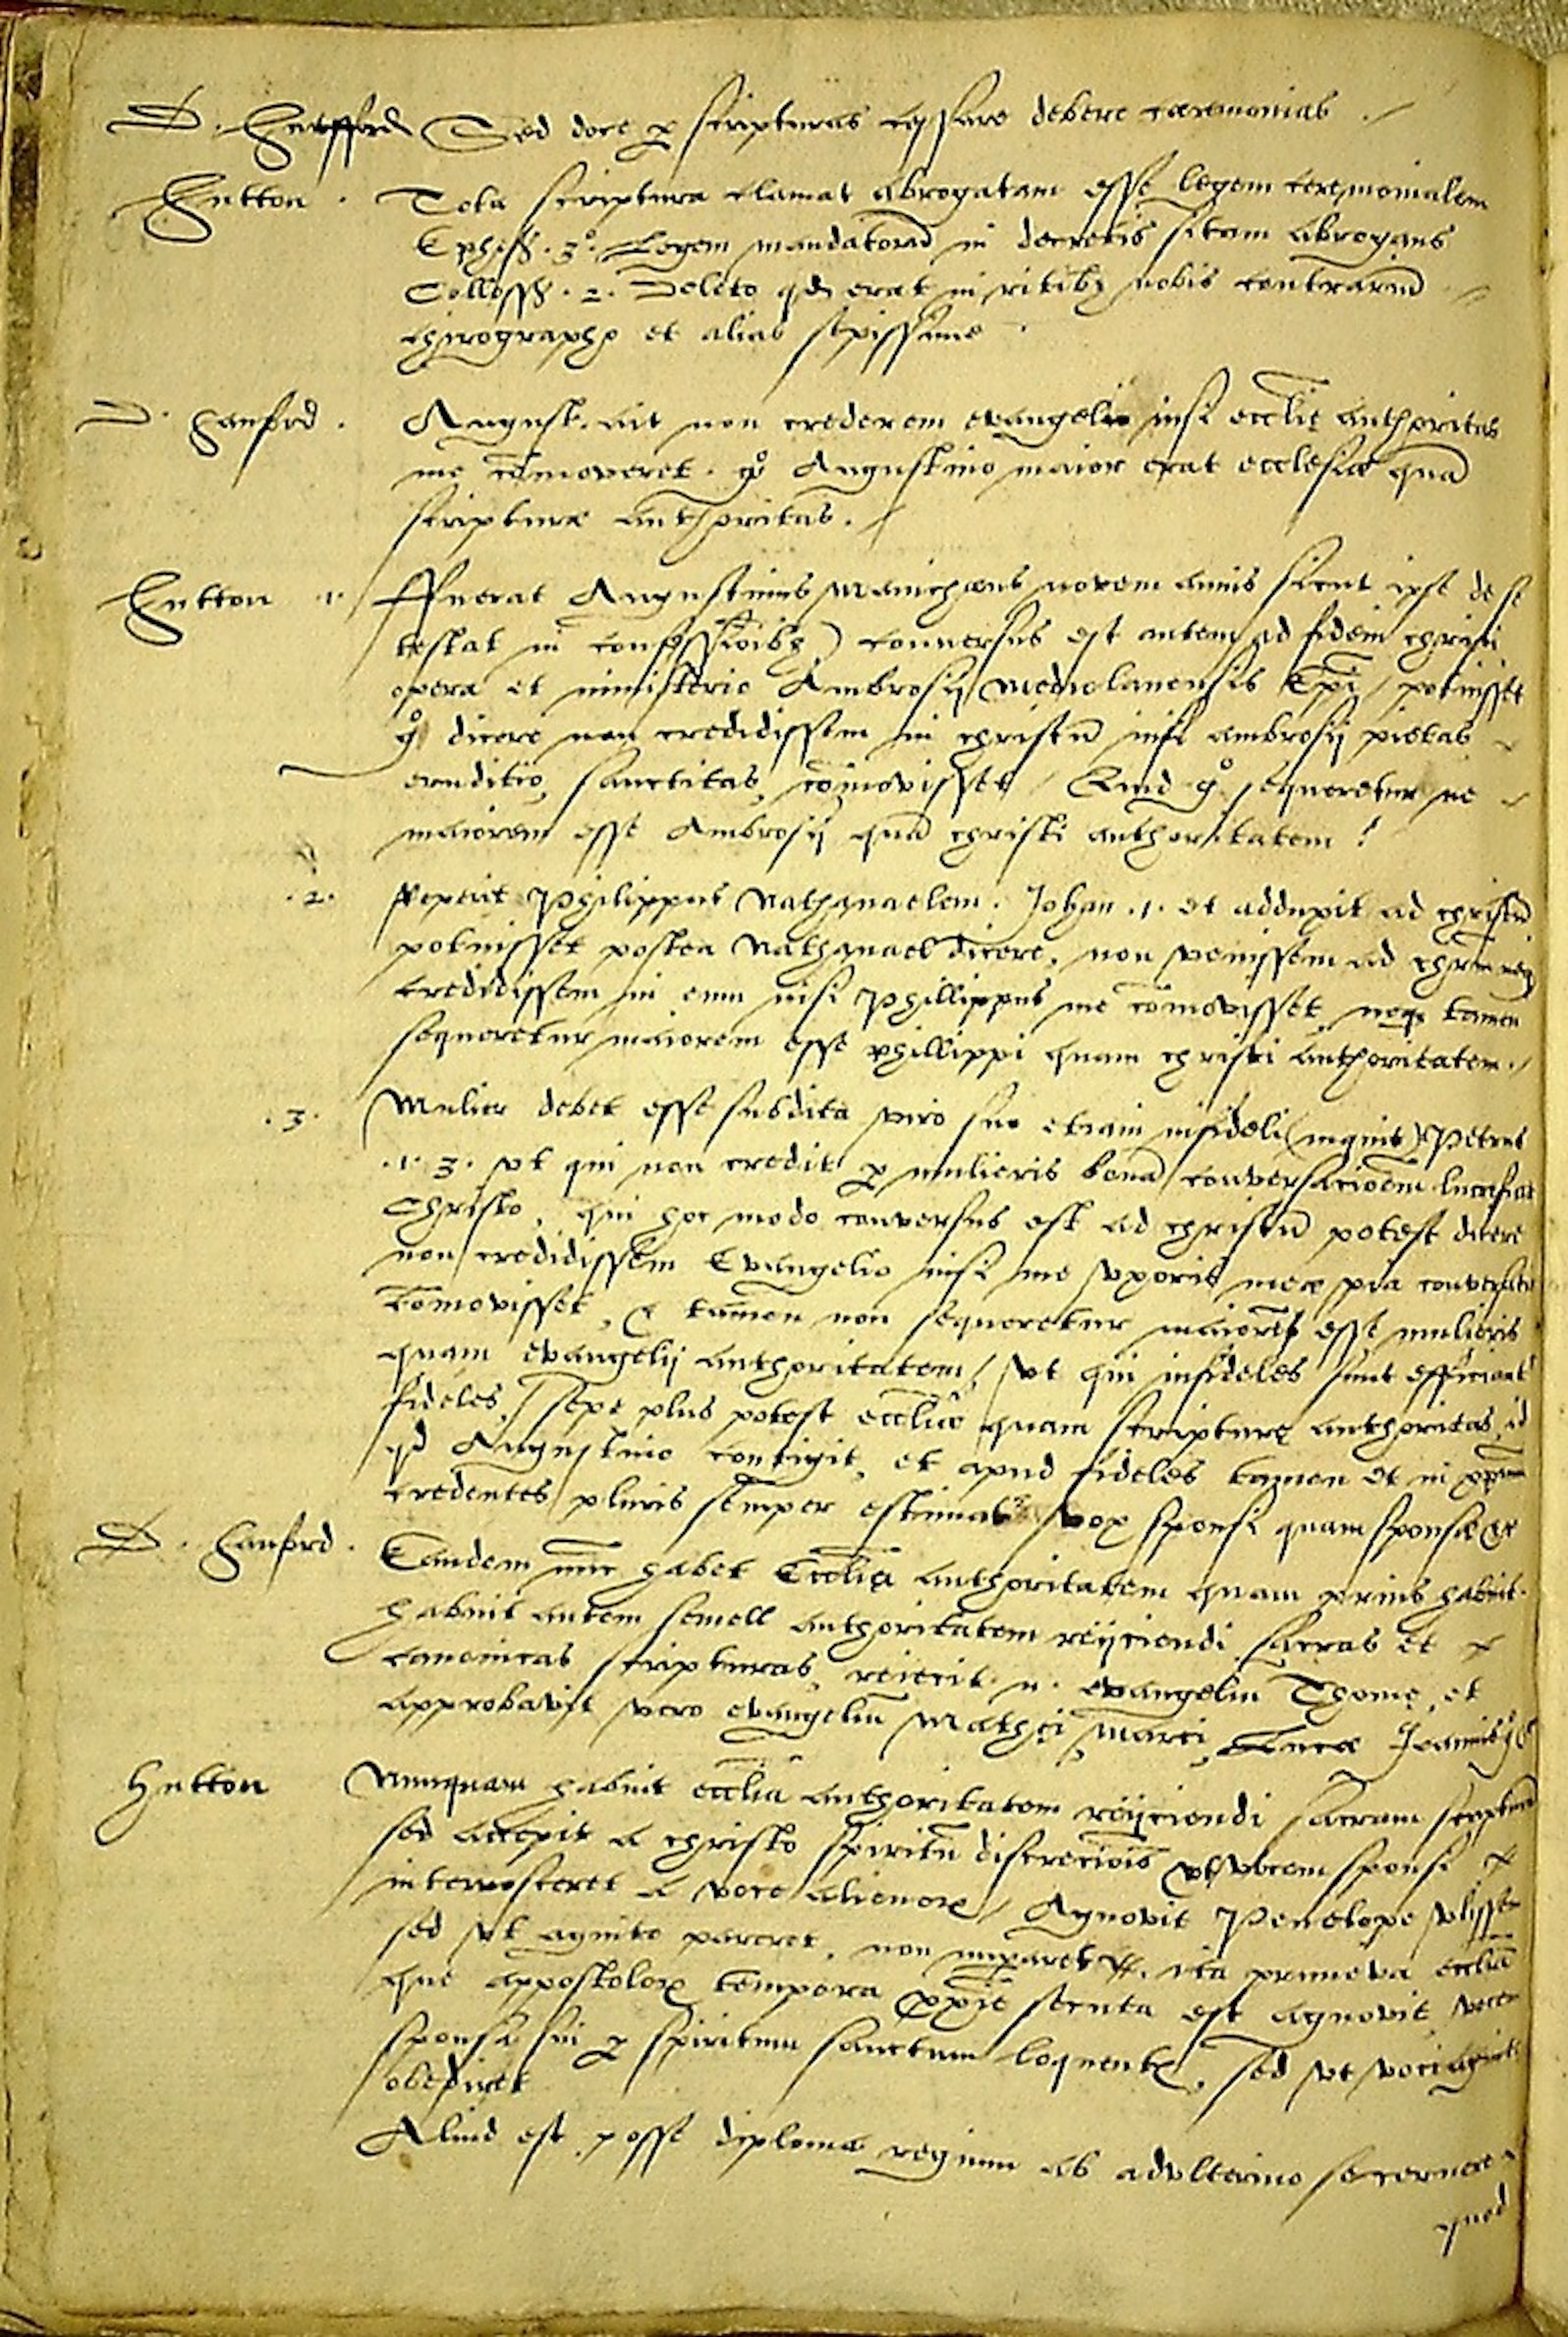 D. Hansford Sed doce p scripturas cessare debere caeremonias.
Hutton. Tota scriptura clamat abrogatam esse legem ceremonialem
Ephess. 3°. Legem mandatorū in decretis sitam abrogans
Colloss. 2. Deleto qd erat in ritibz nobis contrariū
chirographo et alias sepissime.
D. Hanford. August. ait non crederem evangelio nisi ecclię authoritas
me cōmoveret. g° Augustino maior erat ecclesiae quā
scripturae authoritas.
Hutton 1. Ffuerat Augustinus Manichaeus novem annis sicut ipse de se
testat in confessioibz) conversus est autem ad fidem christi
opera et ministerio Ambrosij mediolanensis Epi, potuisset
g° dicere non credidissem in christū nisi ambrosij pietas
eruditio, sanctitas, cōmovisset / Quid g° sequeretur ne
maiorem esse Ambrosij quā christi authoritatem!
.2. Reperit Philippus Nathanaelem. Johan .1. et adduxit ad christū
potuisset postea Nathanael dicere, non venissem ad chrm neq
credidissem in eum nisi Phillippus me cōmovisset, neqz tamen
sequeretur maiorem esse phillippi quam christi authoritatem.
.3. Mulier debet esse subdita viro suo etiam infideli (inquit) Petrus
.1. 3. vt qui non credit p mulieris bonā conversacioēm lucrifiat
Christo, qui hoc modo conversus est ad christū potest dicere
non credidissem Evangelio nisi me vxoris meae pia conversatio
cōmovisset, & tamen non sequeretur maiorem esse mulieris
quam evangelij authoritatem, vt qui infideles sunt efficiant
fideles, sepe plus potest eccliae quam scripturę authoritas, id
qd Augustino contigit, et apud fideles tamen et in
credentes pluris semper estimat vox sponsi quam sponsae &c
D. Hanford. Tandem nūc habet Ecclia authoritatem quam prius habuit.
habuit autem semell authoritatem reijciendi sacras et
canonicas scripturas, reiecit .n. evangeliū Thomę, et
approbavit vero evangeliū Mathei, Marci, Lucae Joannis &c
Hutton Nunquam habuit ecclia authoritatem reijciendi sacram scripturā
sed accepit a christo spiritū discreciōis vt vocem sponsi
internosceret a voce alienorū, Agnovit Penelope Vlissem
sed vt agnito pareret, non imparet. ita primeva ecclia
que appostolorū tempora secuta est agnovit vocem
sponsi sui p spiritum sanctum loquentis, sed vt voci
obediret
Aliud est posse diploma regium ab adulterino secernere
quod